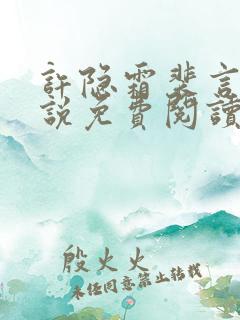 許隐霜裴言
説免費閱讀
殷火火
未经同意禁止转载